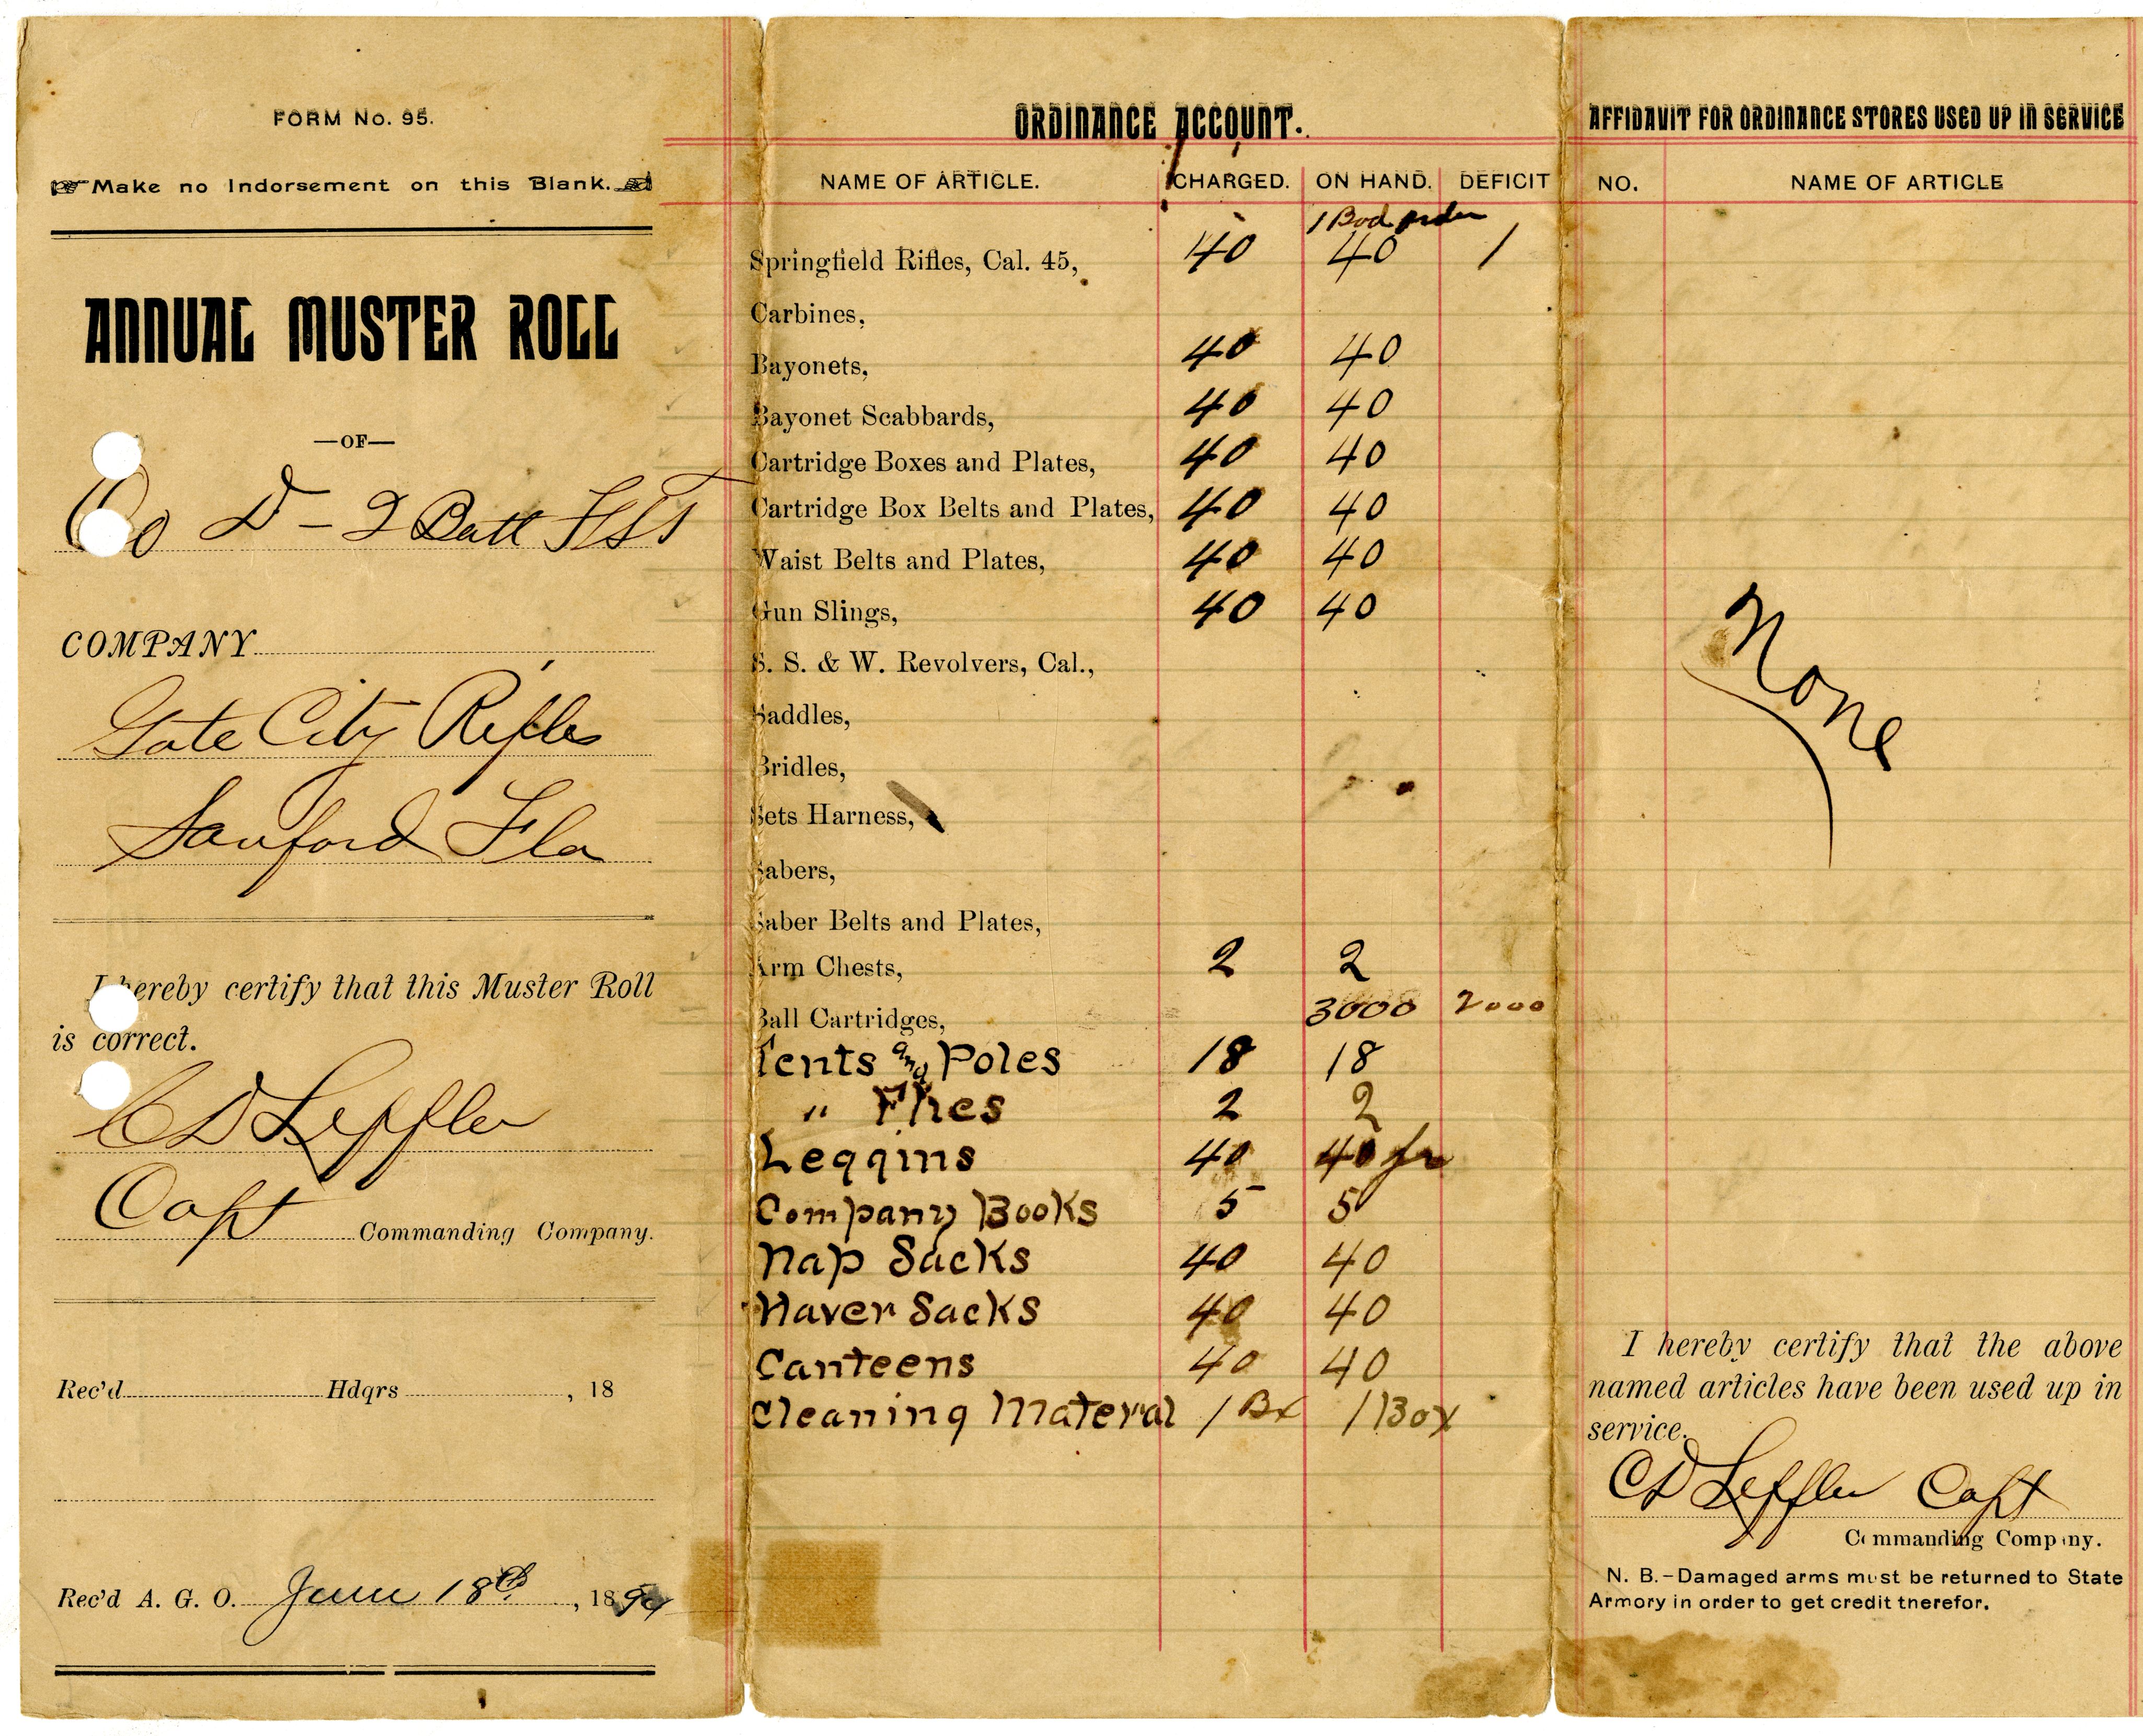 FORM No. 95.
Make no Indorsement on this Blank.
ANNUAL MUSTER ROLL
—OF—
Co D - 2 Batt FST
COMPANY
Gate City Rifles
Sanford Fla
I hereby certify that this Muster Roll
is correct.
CD Leffler
Capt Commanding Company.
Rec'd Hdqrs , 18
Rec'd A. G. O. June 18th , 1894
ORDINANCE ACCOUNT.
NAME OF ARTICLE. CHARGED. ON HAND. DEFICIT
1 Bad order
Springfield Rifles, Cal. 45, 40 40 1
Carbines,
Bayonets, 40 40
Bayonet Scabbards, 40 40
Cartridge Boxes and Plates, 40 40
Cartridge Box Belts and Plates, 40 40
Waist Belts and Plates, 40 40
Gun Slings, 40 40
S. S. & W. Revolvers, Cal.,
Saddles,
Bridles,
Sets Harness,
Sabers,
Saber Belts and Plates,
Arm Chests, 2 2
Ball Cartridges, 3000 2000
Tents and Poles 18 18
" Flies 2 2
Leggins 40 40
Company Books 5 5
Nap Sacks 40 40
Haver Sacks 40 40
Canteens 40 40
Cleaning Materal 1 Bx 1 Box
AFFIDAVIT FOR ORDINANCE STORES USED UP IN SERVICE
NO. NAME OF ARTICLE
None
I hereby certify that the above
named articles have been used up in
service.
CD Leffler Capt
Commanding Company.
N. B.-Damaged arms must be returned to State
Armory in order to get credit therefor.